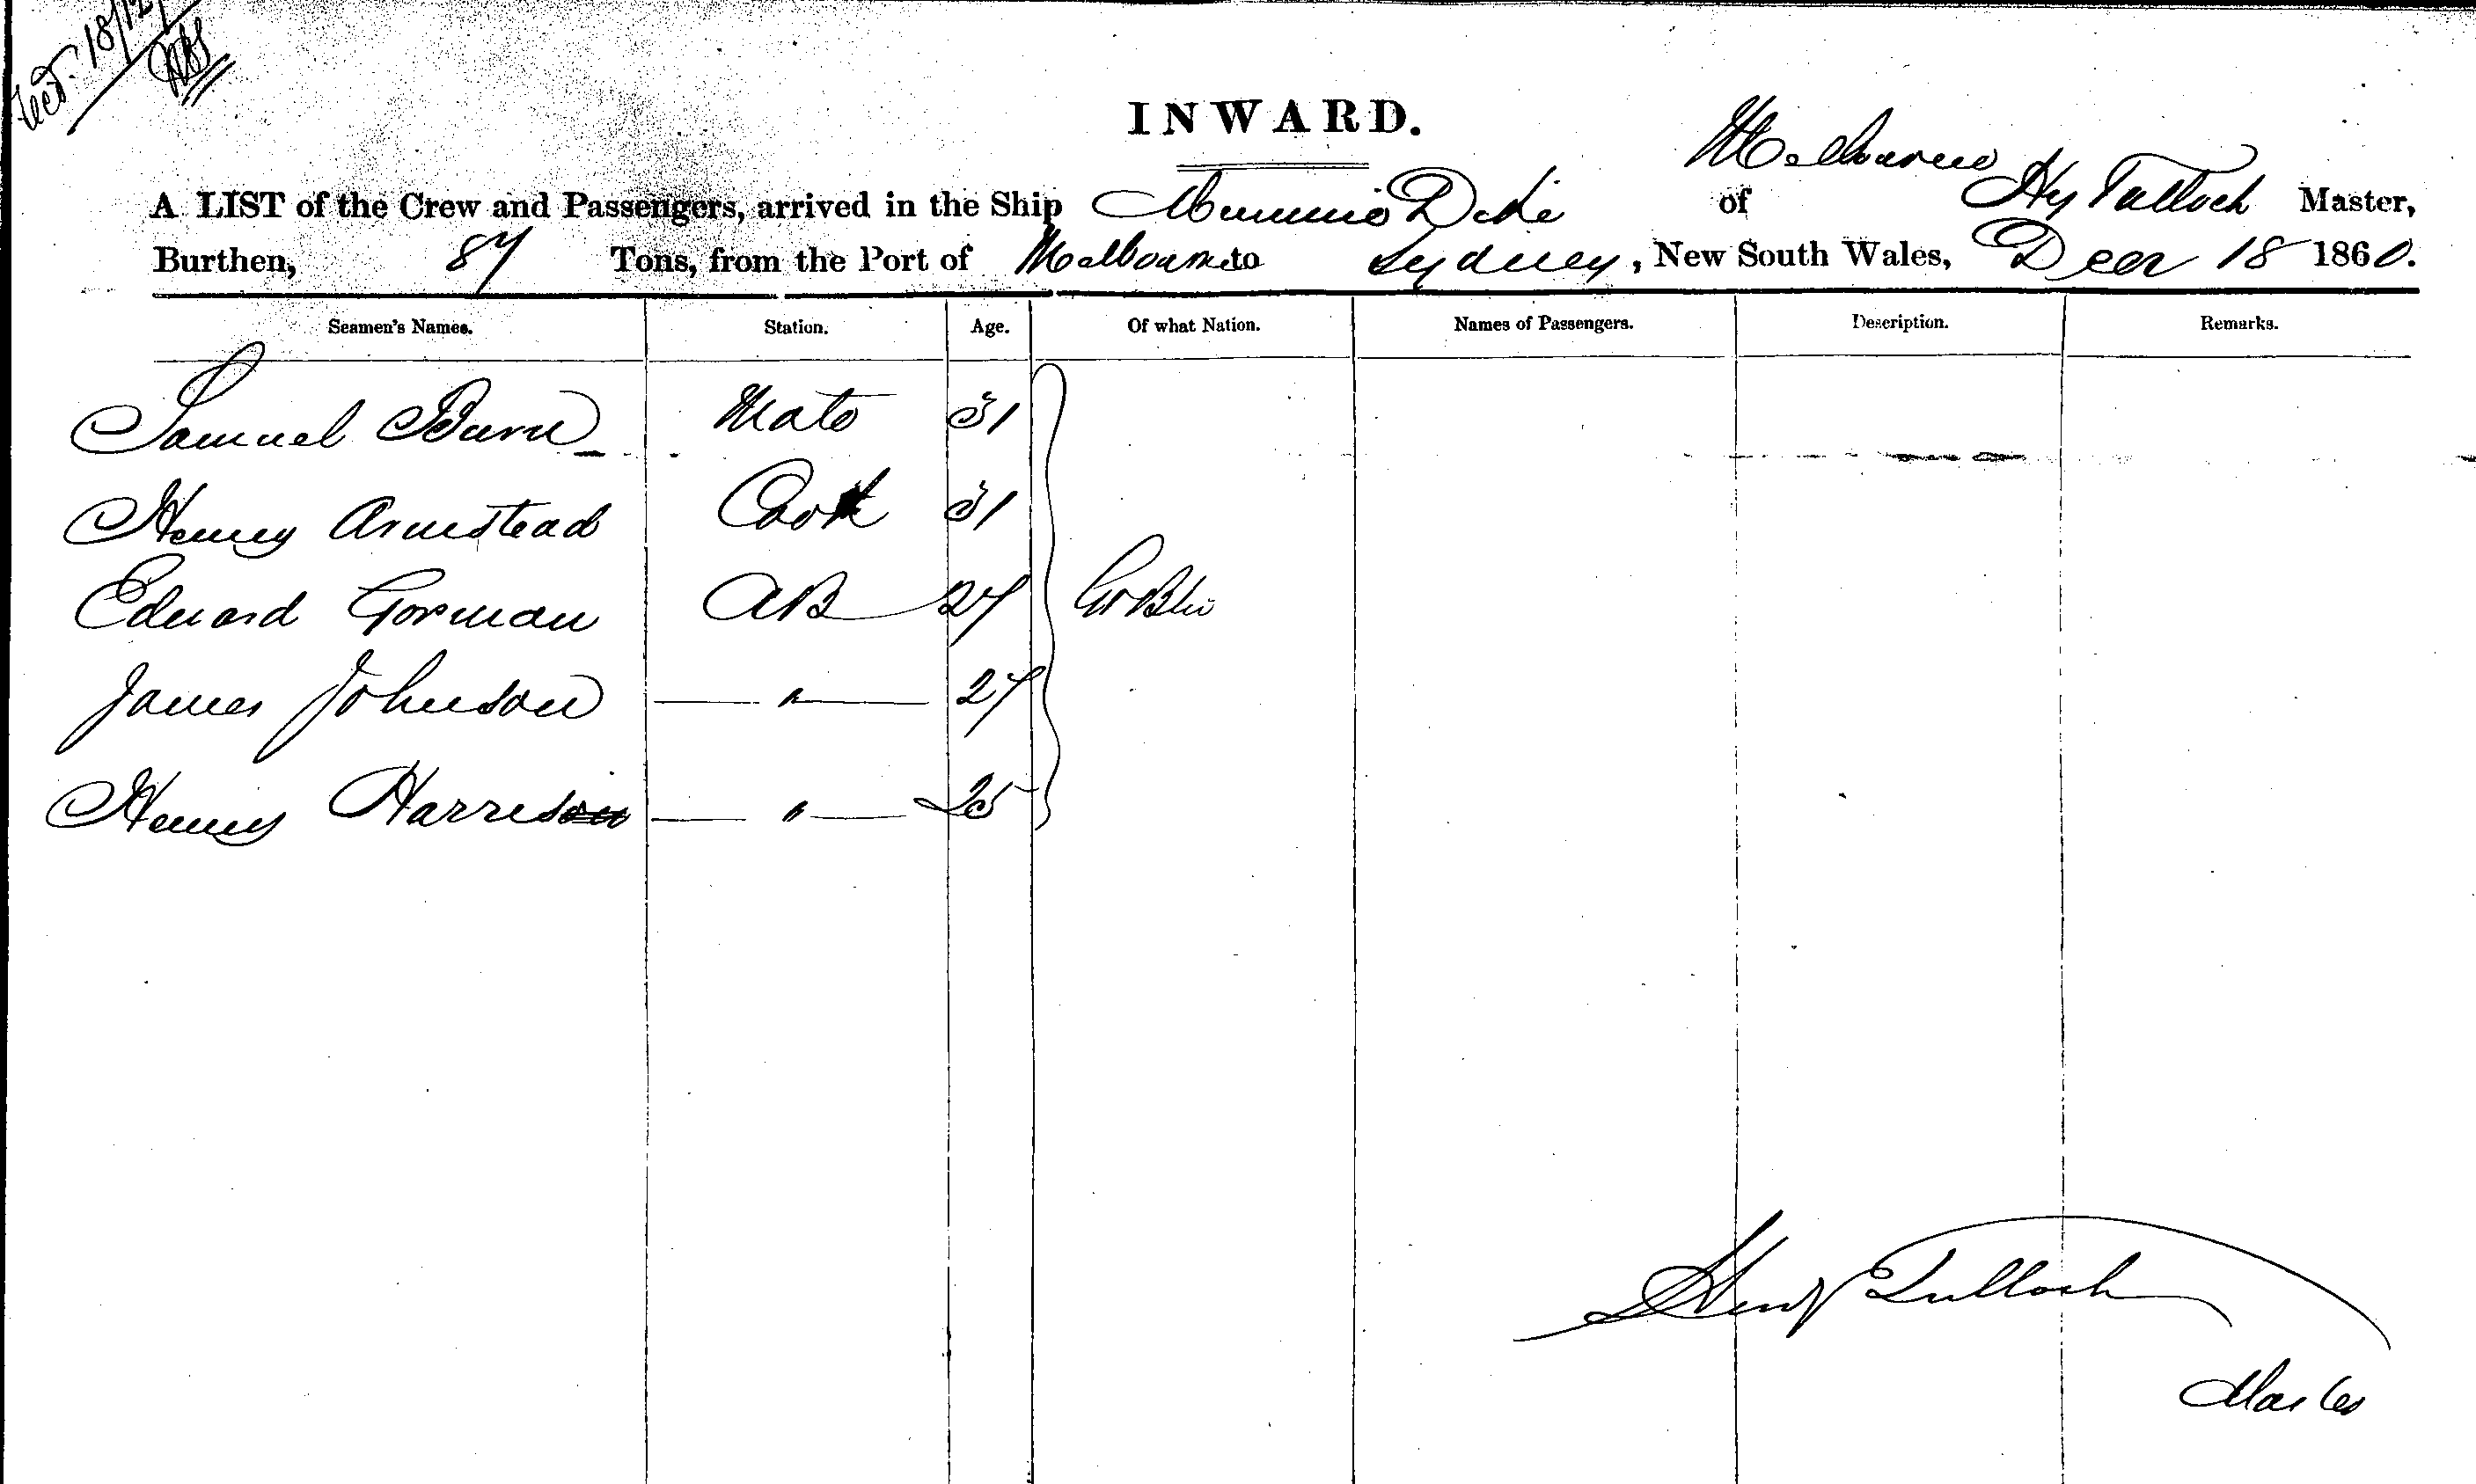 Recd. 18/12
INWARD.
Melbourne
A LIST of the Crew and Passengers, arrived in the Ship Minnie Dike of Hy Tulloch Master,
Burthen, 87 Tons, from the Port of Melbourne to Sydney, New South Wales, Decr 18 1860.
Seamen's Names. Station. Age. Of what Nation. Names of Passengers. Description. Remarks.
Samuel Burn Mate 31
Henry Armstead Cook 31
Edward Gorman AB 27 Gr Bn
James Johnson — " — 27
Henry Harrison — " — 25
Henry Tulloch
Master